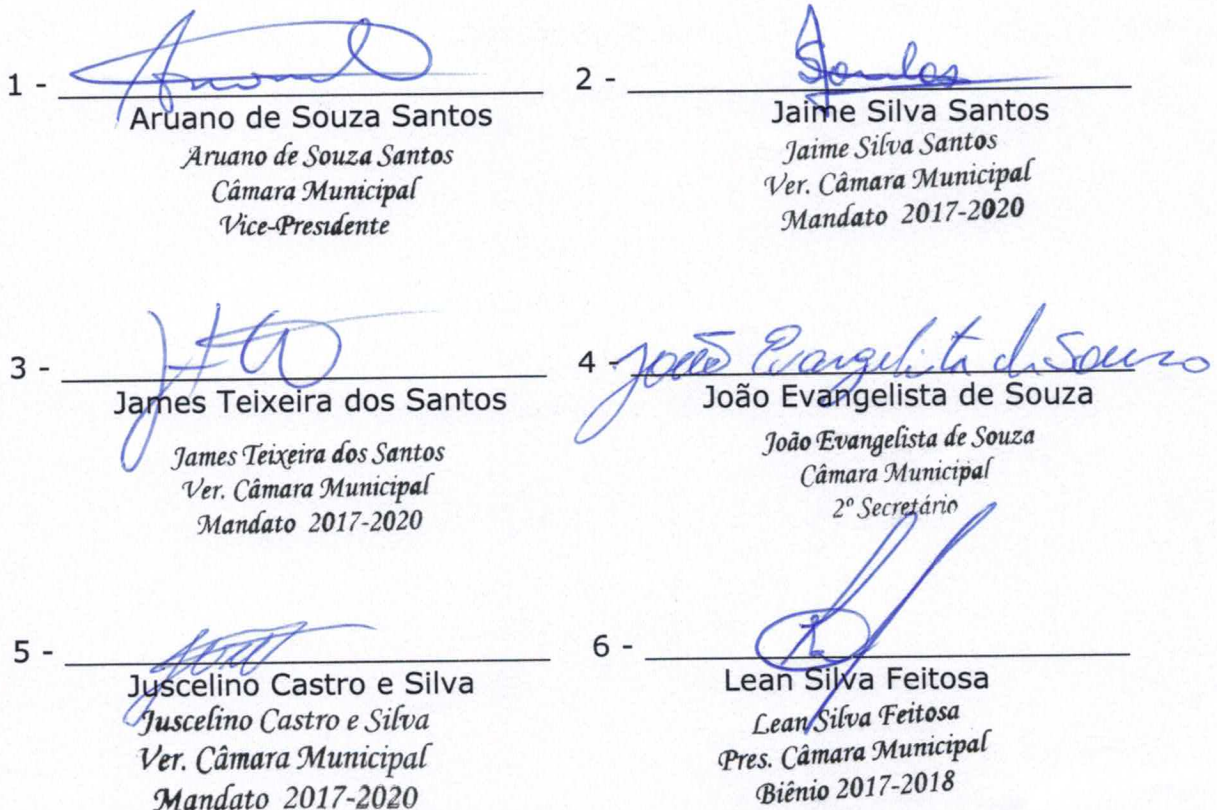 1 -
Aruano de Souza Santos
Aruano de Souza Santos
Câmara Municipal
Vice-Presidente
2 -
Santos
Jaime Silva Santos
Jaime Silva Santos
Ver. Câmara Municipal
Mandato 2017-2020
3 -
James Teixeira dos Santos
James Teixeira dos Santos
Ver. Câmara Municipal
Mandato 2017-2020
4 -
João Evangelista de Souza
João Evangelista de Souza
João Evangelista de Souza
Câmara Municipal
2º Secretário
5 -
Juscelino Castro e Silva
Juscelino Castro e Silva
Ver. Câmara Municipal
Mandato 2017-2020
6 -
Lean Silva Feitosa
Lean Silva Feitosa
Pres. Câmara Municipal
Biênio 2017-2018